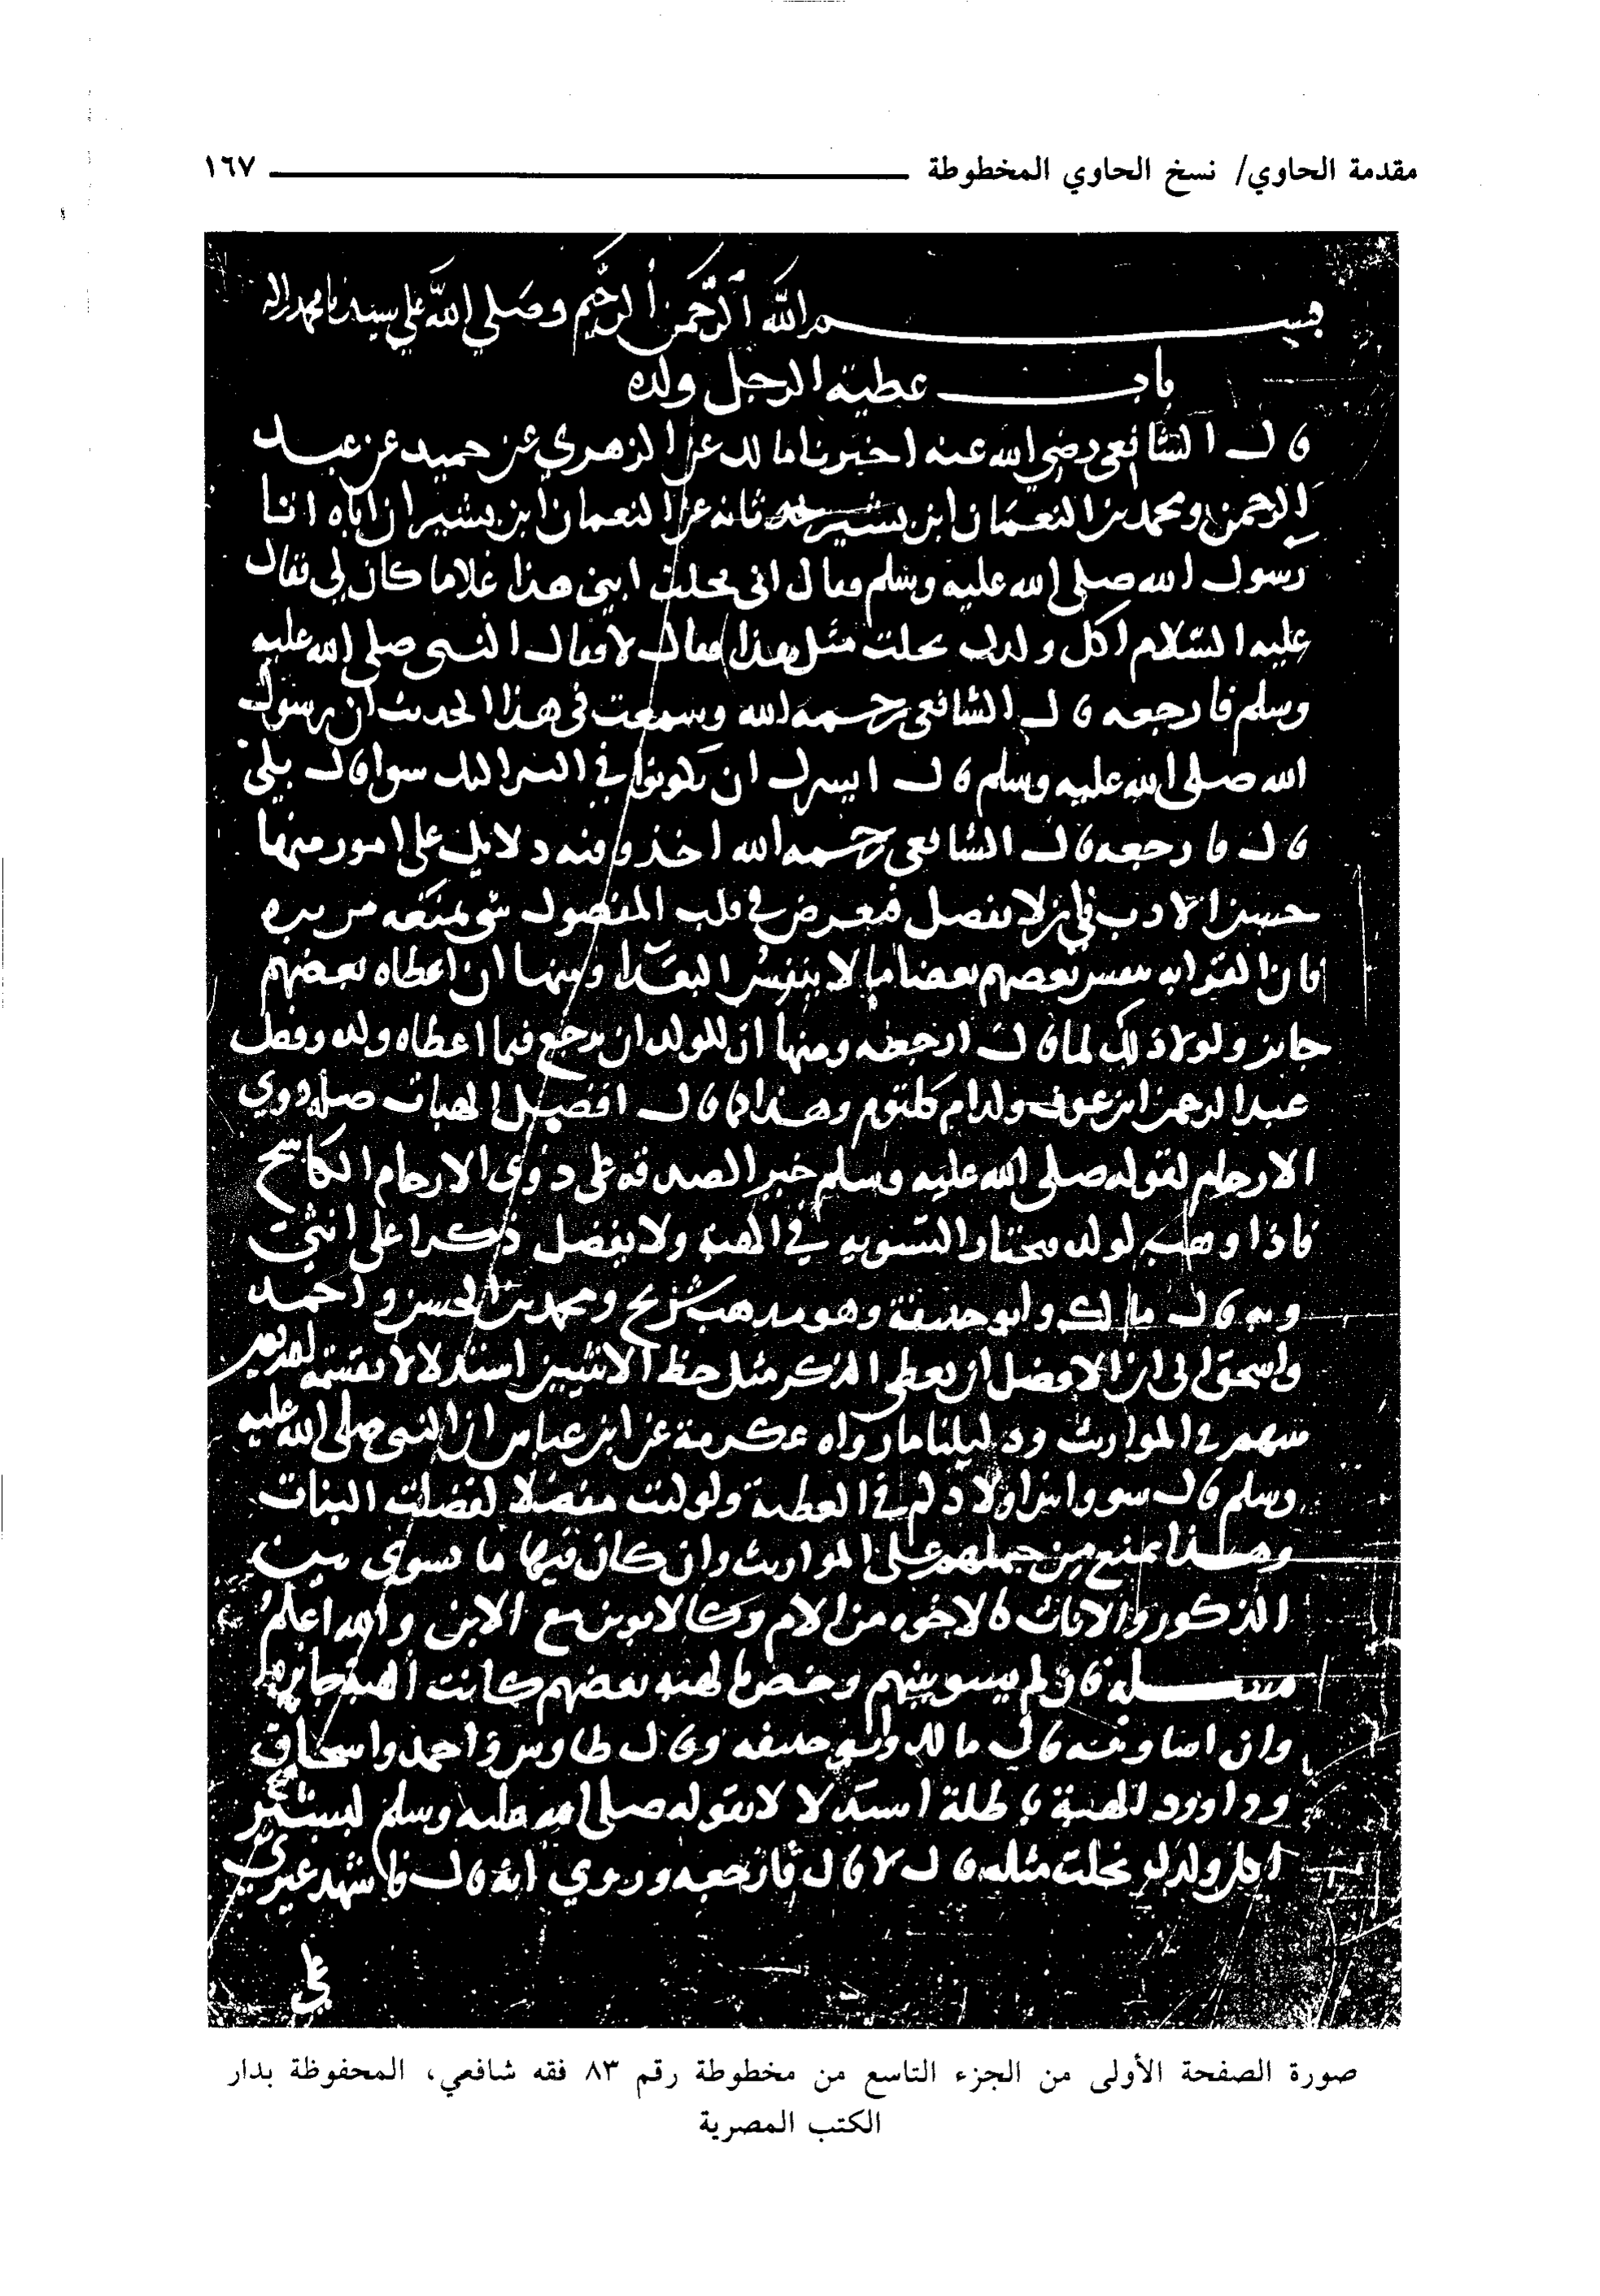 مقدمة الحاوي/ نسخ الحاوي المخطوطة ١٦٧
بسم الله الرحمن الرحيم وصلى الله على سيدنا محمد واله
باب عطية الرجل ولده
قال الشافعي رضي الله عنه اخبرنا مالك عن الزهري عن حميد عن عبد
الرحمن ومحمد بن النعمان ابن بشير حدثانه عن النعمان ابن بشير ان اباه اتا
رسول الله صلى الله عليه وسلم فقال انى نحلت ابني هذا غلاما كان لي فقال
عليه السلام اكل ولدك نحلت مثل هذا فقال لا فقال النبي صلى الله عليه
وسلم فارجعه قال الشافعي رحمه الله وسمعت في هذا الحديث ان رسول
الله صلى الله عليه وسلم قال ايسرك ان يكونوا في البر اليك سوا قال بلى
قال فارجعه قال الشافعي رحمه الله اخذ وفيه دلايل على امور منها
حسن الادب في ان لا يفضل فيعرض في قلب المفضول شي يمنعه من بره
فان القرابه ينفس بعضهم بعضا ما لا ينفس البعدا ومنها ان اعطاه بعضهم
جايز ولولا ذلك لما قال ارجعه ومنها ان للوالد ان يرجع فيما اعطاه ولده وفضل
عبد الرحمن ابن عوف ولد ام كلثوم وهذا كما قال افضل الهبات صله ذوي
الارحام لقوله صلى الله عليه وسلم خير الصدقه على ذوى الارحام الكاشح
فاذا وهب لولده فيختار التسويه في الهبه ولا يفضل ذكرا على انثى
وبه قال مالك وابو حنيفة وهو مذهب شريح ومحمد بن الحسن واحمد
واسحق الى ان الافضل ان يعطى الذكر مثل حظ الانثيين استدلالا بقسمه الله
سهمهم في المواريث ودليلنا ما رواه عكرمة عن ابن عباس ان النبي صلى الله عليه
وسلم قال سووا بين اولادكم في العطية ولو كنت مفضلا لفضلت البنات
وهذا يمنع من حملهم على المواريث وان كان فيها ما يسوى بين
الذكور والاناث كالاخوه من الام وكالابوين مع الابن والله اعلم
مسله فان لم يسو بينهم وخص بالهبه بعضهم كانت الهبة جايزه
وان اسا وبه قال مالك وابو حنيفه وقال طاوس واحمد واسحاق
وداوود الهبة باطلة استدلالا بقوله صلى الله عليه وسلم لبشير
اكل ولدك نحلت مثله قال لا قال فارجعه وروي انه قال فاشهد غيري
على
صورة الصفحة الأولى من الجزء التاسع من مخطوطة رقم ٨٣ فقه شافعي، المحفوظة بدار
الكتب المصرية